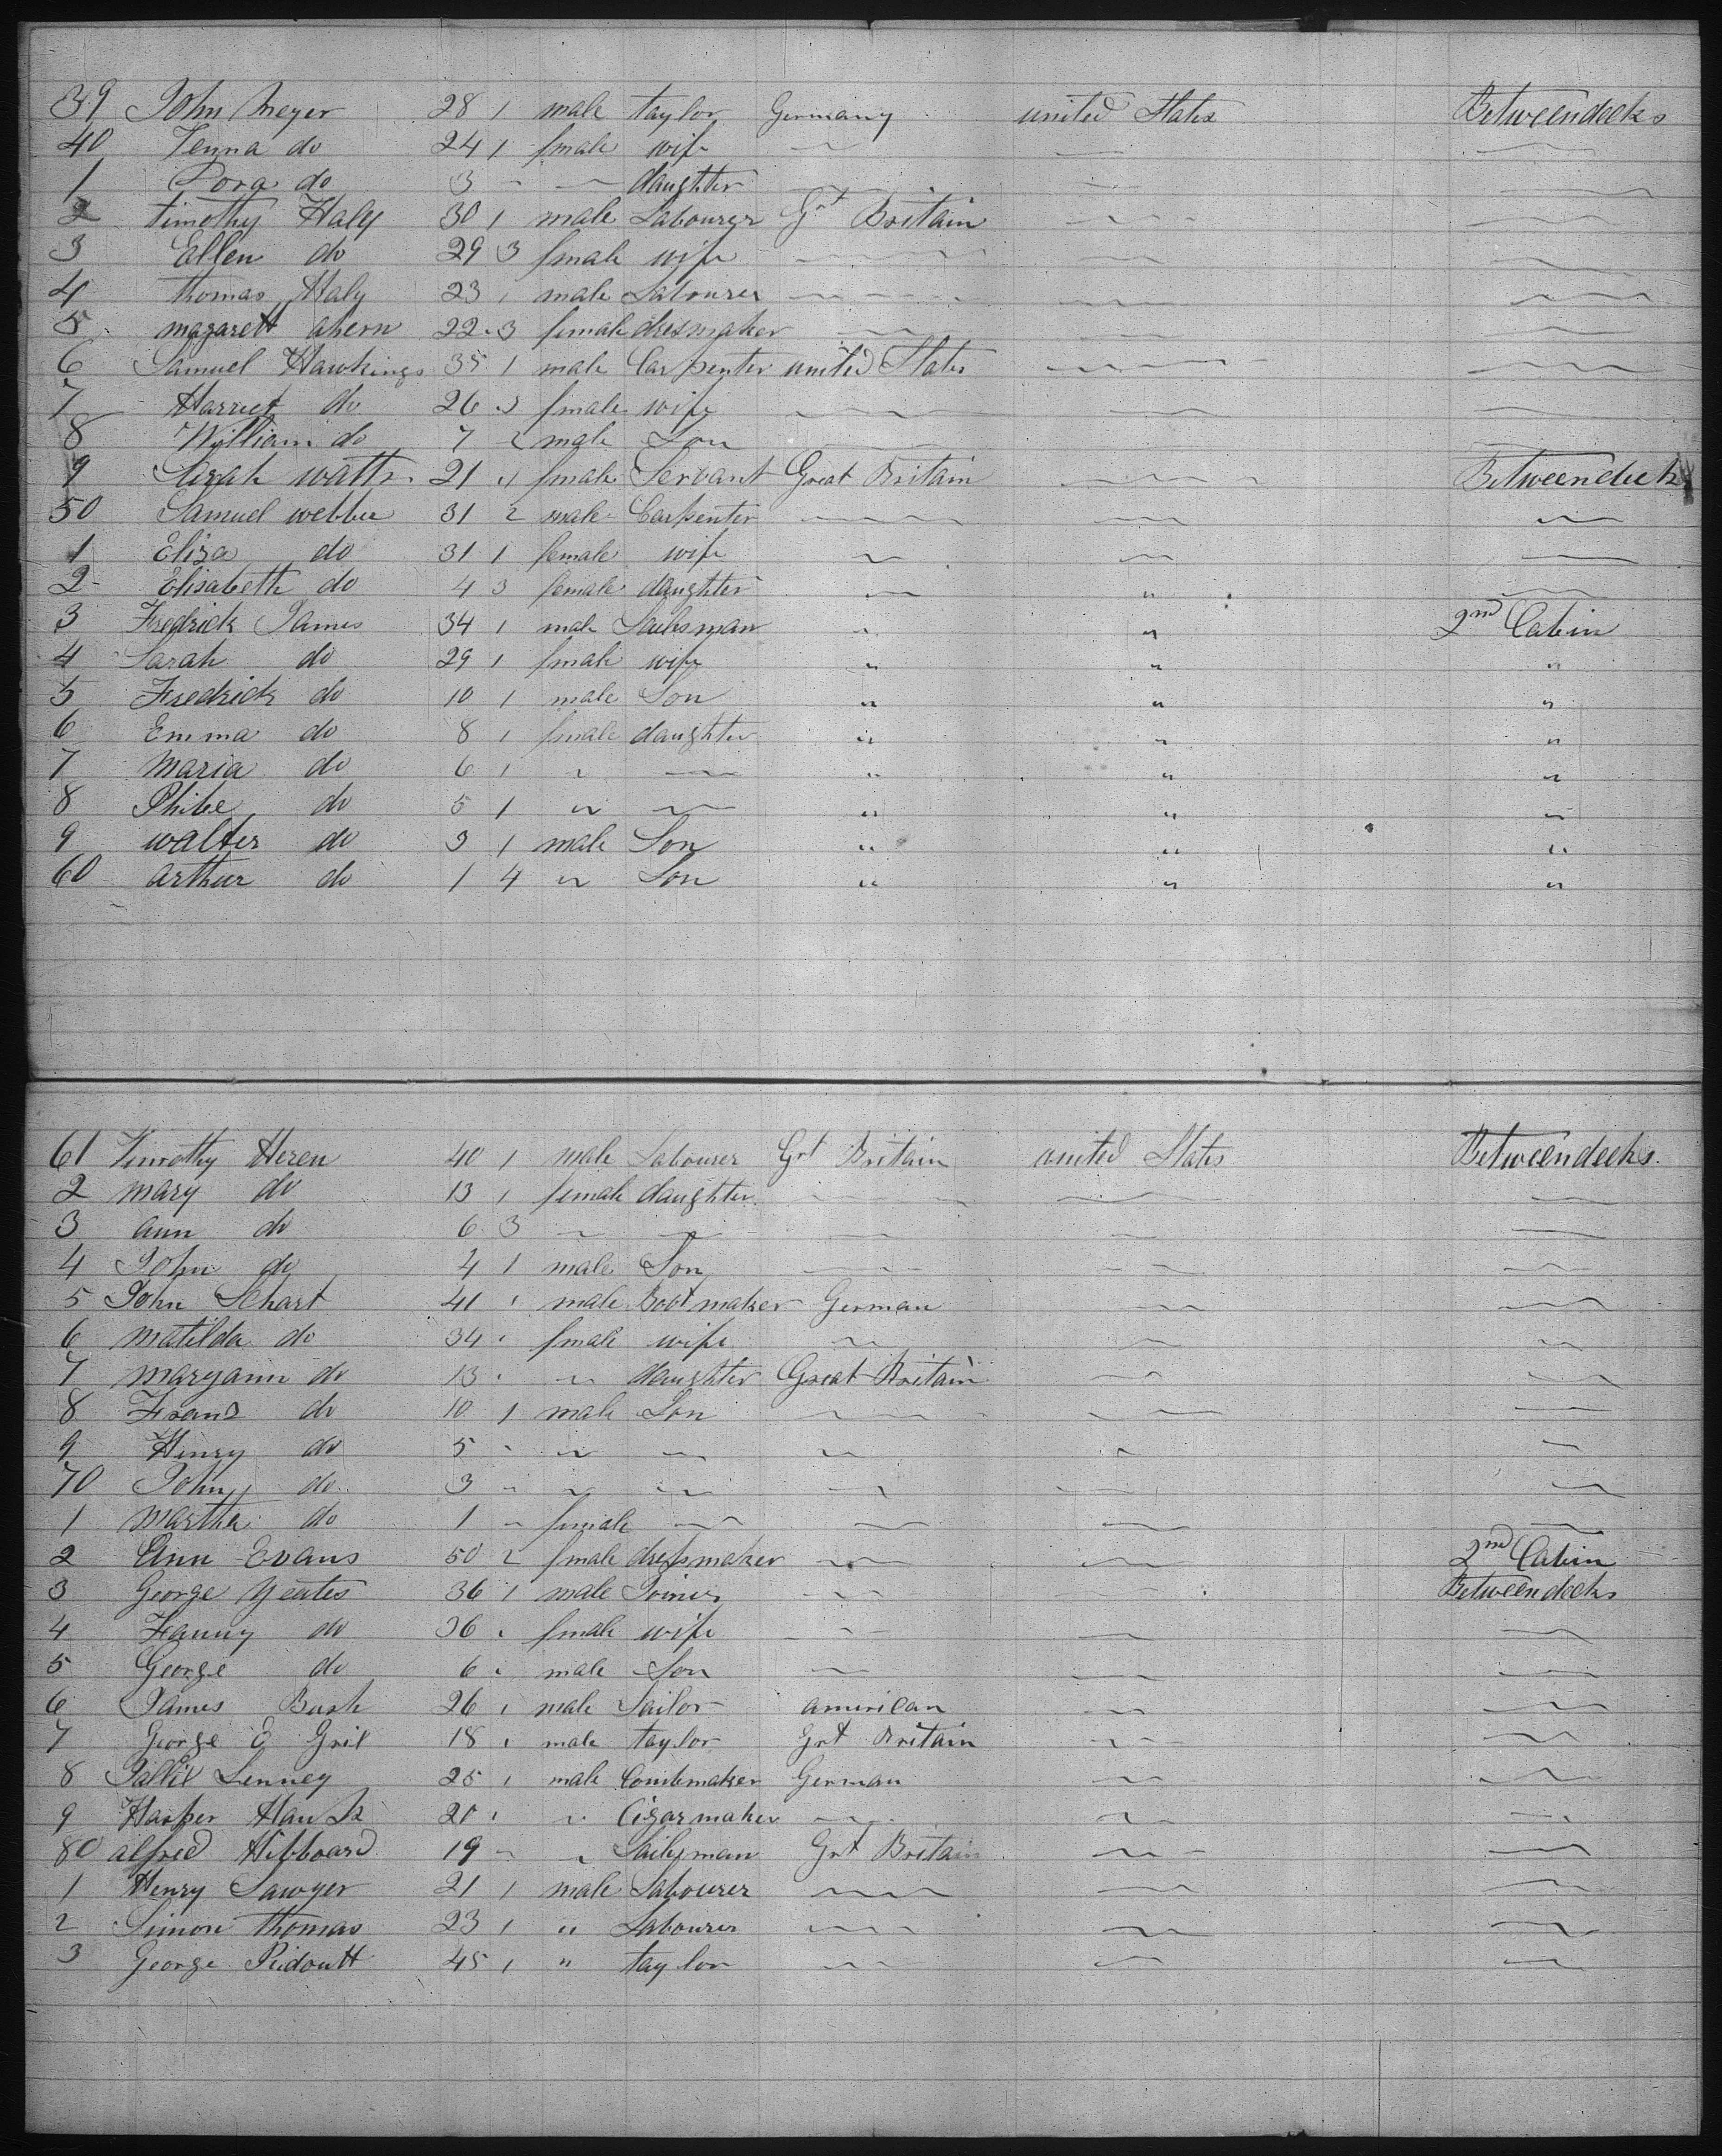 39 John Meyer 28 1 male taylor Germany united States Betweendecks
40 Jenna do 24 1 fmale wife
1 Dora do 3 daughter
2 timothy Haly 30 1 male Labourer Grt Britain
3 Ellen do 29 3 fmale wife
4 thomas Haly 23 male Labourer
5 magarett ahern 22 3 female dresmaker
6 Samuel Hawkings 35 1 male Carpenter united States
7 Harriet do 26 3 fmale wife
8 William do 7 2 male Son
9 Sarah watts 21 female Servant Great Britain Betweendecks
50 Samuel webber 31 2 male Carpenter
1 Eliza do 31 1 female wife
2 Elisabeth do 4 3 female daughter "
3 Fredrick James 34 1 male Sailsman " " 2nd Cabin
4 Sarah do 29 1 fmale wife " " "
5 Fredrick do 10 1 male Son " " "
6 Emma do 8 1 fmale daughter " " "
7 Maria do 6 1 " " " "
8 Phibe do 5 1 " " " "
9 walter do 3 1 male Son " " "
60 arthur do 1 4 " Son " " "
61 Timothy Heren 40 1 male Labourer Grt Britain united States Betweendecks.
2 mary do 13 1 female daughter
3 ann do 6 3
4 John do 4 1 male Son
5 John Schart 41 male Bootmaker German
6 Matilda do 34 fmale wife
7 Maryann do 13 " daughter Great Britain
8 Franz do 10 1 male Son
9 Henry do 5 "
70 John do 3 "
1 Martha do 1 female
2 Ann Evans 50 2 fmale dressmaker 2nd Cabin
3 George Yeates 36 1 male Joiner Betweendecks
4 Fanny do 36 fmale wife
5 George do 6 male Son
6 James Bush 26 male Sailor american
7 George E Gril 18 male taylor Grt Britain
8 Lenney 25 male Combmaker German
9 20 " Cigarmaker
80 alfred Hibboard 19 " Sailsman Grt Britain
1 Henry Sawyer 21 1 male Labourer
2 Simon thomas 23 1 " Labourer
3 George Ridoutt 45 1 " taylor